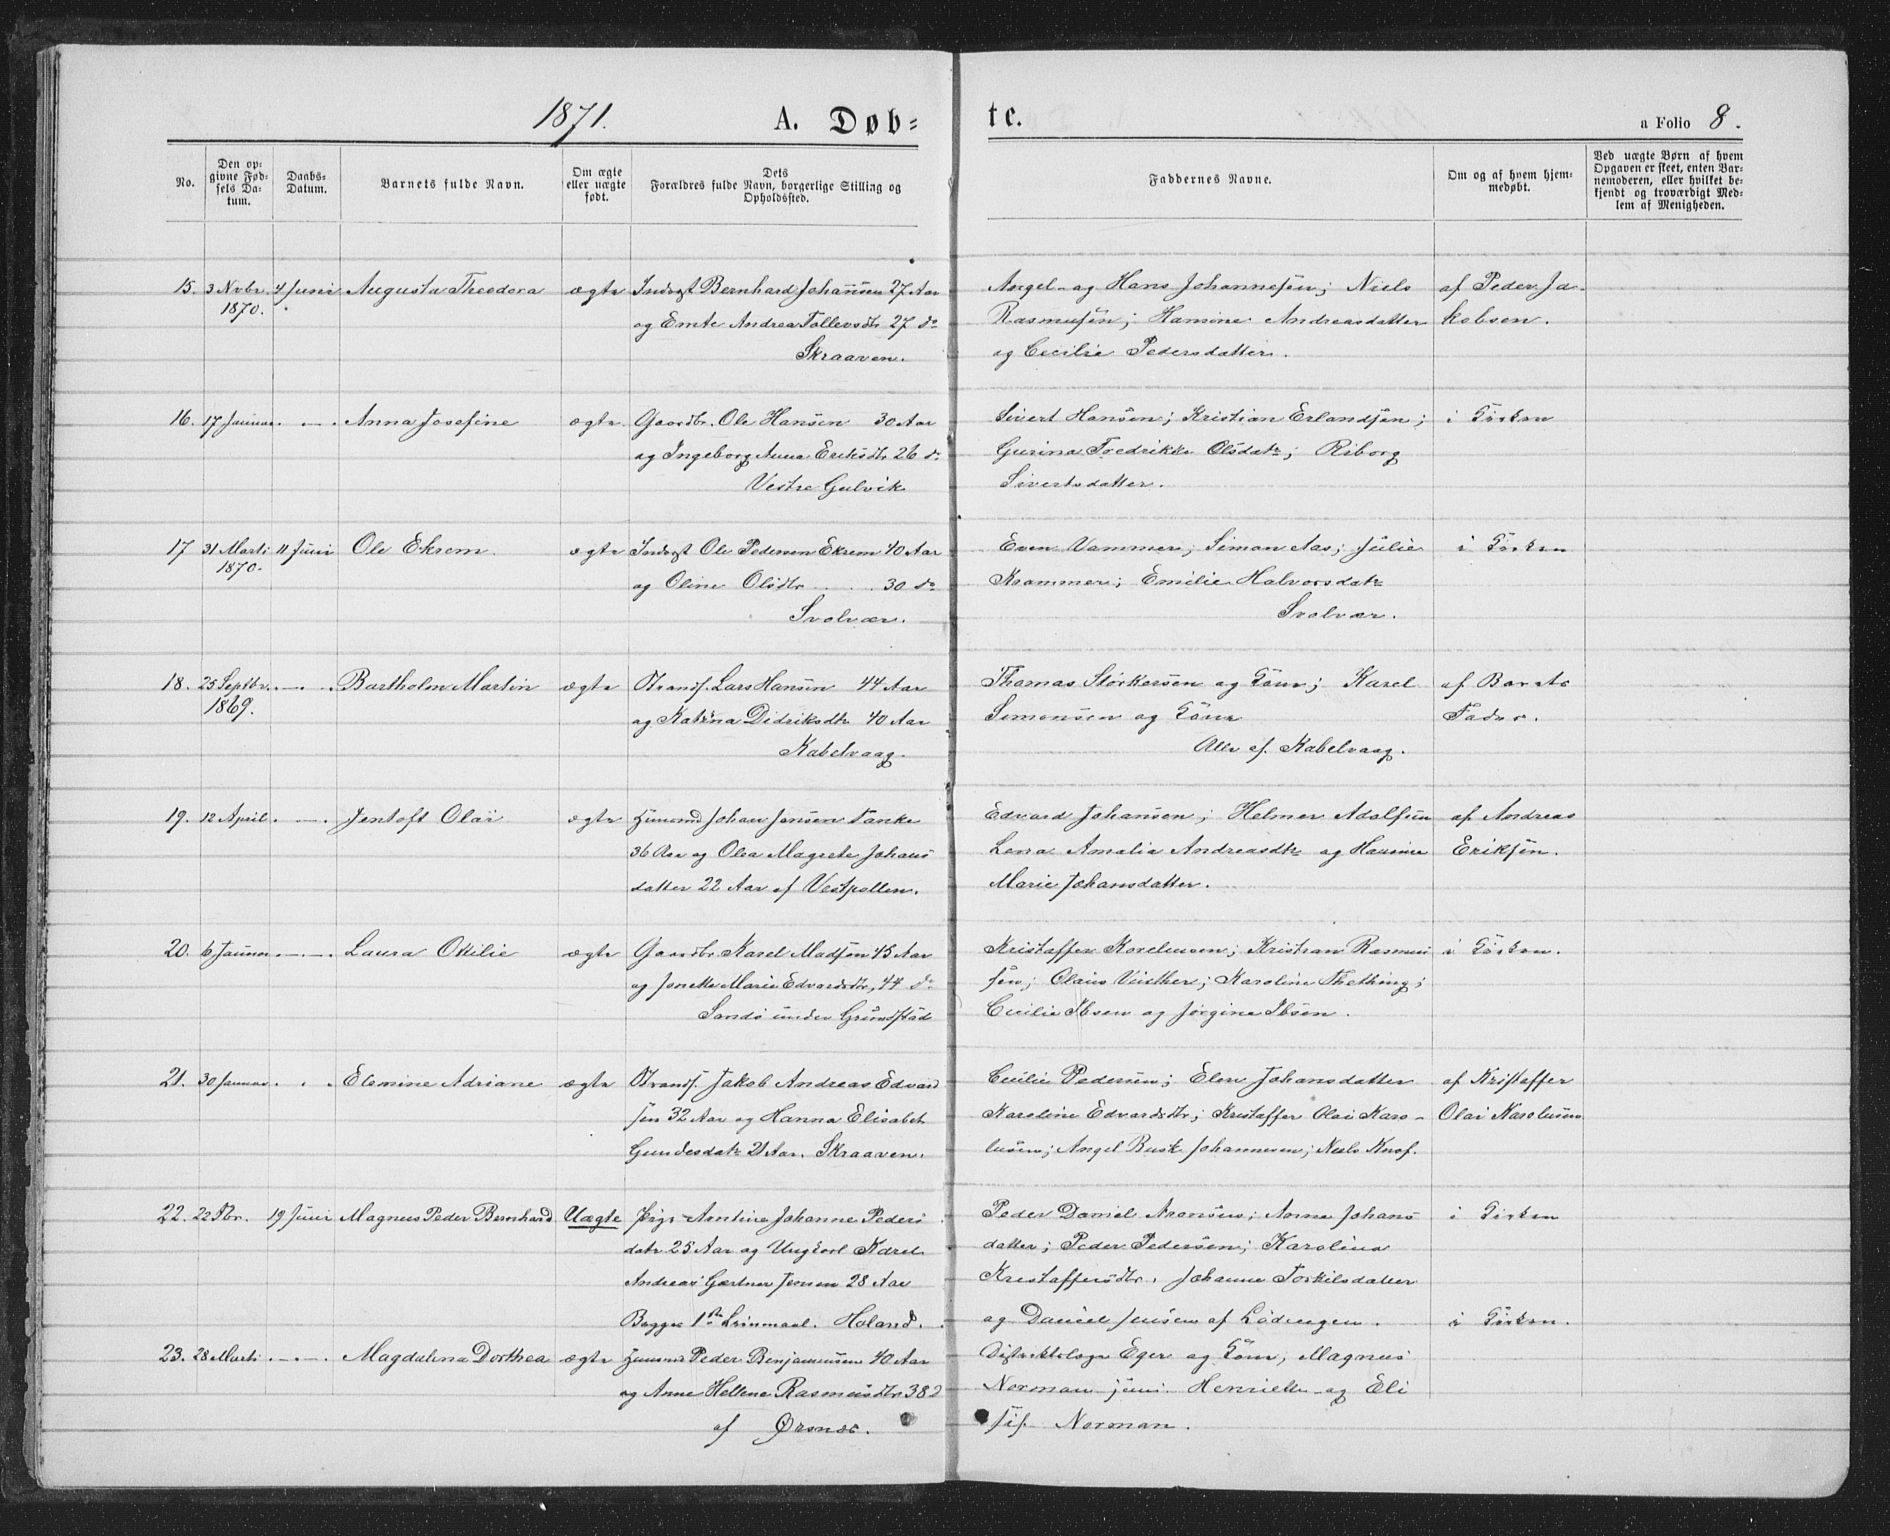 1871.
A. Døb=
te.
a Folio 8.
No.
Den op=
givne Fød=
sels Da=
tum.
Daabs=
Datum.
Barnets fulde Navn.
Om ægte
eller uægte
født.
Dets
Forældres fulde Navn, borgerlige Stilling og
Opholdssted.
Faddernes Navne.
Om og af hvem hjem=
medøbt.
Ved uægte Børn af hvem
Opgaven er skeet, enten Bar=
nemoderen, eller hvilket be=
kjendt og troværdigt Med=
lem af Menigheden.
15. 3 Nvbr. 4 Juni Augusta Theodora ægte Indrgt Bernhard Johansen 27 Aar
1870. og Emte Andrea Tollevsdtr 27 do
Skraaven.
Angel og Hans Johannesen; Niels af Peder Ja-
Rasmusen; Hansine Andreasdatter kobsen.
og Cecilie Pedersdatter.
16. 17 Januar. — Anna Josefine ægte Gaardbr. Ole Hansen 30 Aar
og Ingeborg Anna Eriksdtr 26 do
Vestre Gulvik
Sivert Hansen; Kristian Erlandsen; i Kirken
Gurina Fredrikke Olsdatr; Riborg
Sivertsdatter.
17 31 Marts 11 Juni Ole Ekrem ægte Indrgt Ole Pedersen Ekrem 40 Aar
1870. og Oline Olsdtr 30 do
Svolvær.
Even Vammer; Simon Aas; Julie i Kirken
Krammer; Emilie Halvorsdatr
Svolvær.
18. 25 Septbr. — Bartholm Martin ægte Strands. Lars Hansen 44 Aar
1869. og Katrina Didriksdtr 40 Aar
Kabelvaag.
Thomas Størkersen og Kone; Karel af Barnets
Simonsen og Kone Fader.
Alle af Kabelvaag.
19. 12 April. — Jentoft Olai ægte Huusmd Johan Jensen Tanke
36 Aar og Olea Magrete Johans
datter 22 Aar af Vestpollen.
Edvard Johansen; Helmer Adolfsen af Andreas
Lena Amalia Andreasdtr og Hansine Eriksen.
Marie Johansdatter.
20. 6 Januar — Laura Otilie ægte Gaardbr. Karel Madsen 45 Aar
og Jonette Marie Edvardsdtr, 44 do
Sandø under Grundstad
Kristaffer Koreliusen; Kristian Rasmus i Kirken.
sen; Olaus Vinther; Karoline Thething;
Cecilie Ibsen og Jørgine Ibsen.
21. 30 Januar Elemine Adriane ægte Strands. Jakob Andreas Edvard
sen 32 Aar og Hanna Elisabet
Gundesdatr 21 Aar. Skraaven.
Cecilie Pedersen; Elen Johansdatter af Kristaffer
Karoline Edvardsdtr; Kristaffer Olai Karo- Olai Karolusen
lusen; Angel Busk Johannesen; Niels Knof.
22. 22 Fbr. 19 Juni Magnus Peder Bernhard Uægte Pige Antine Johanne Peders
datr 25 Aar og Ungkarl Karel
Andreas Gærtner Jensen 28 Aar
Begges 1ste Leiermaal. Holand.
Peder Daniel Aronsen; Anna Johans i Kirken
datter; Peder Pedersen; Karolina
Kristaffersdtr. Johanne Torkilsdatter
og Daniel Jensen af Lødingen. i Kirken.
23. 28 Marts — Magdalena Dorthea ægte Huusmd Peder Benjaminsen 40 Aar
og Anne Hellene Rasmusdtr 38 do
af Ørsnæs.
Distriktslæge Eger og Kone; Magnus
Norman jun. Henriette og Eli
sif Norman.